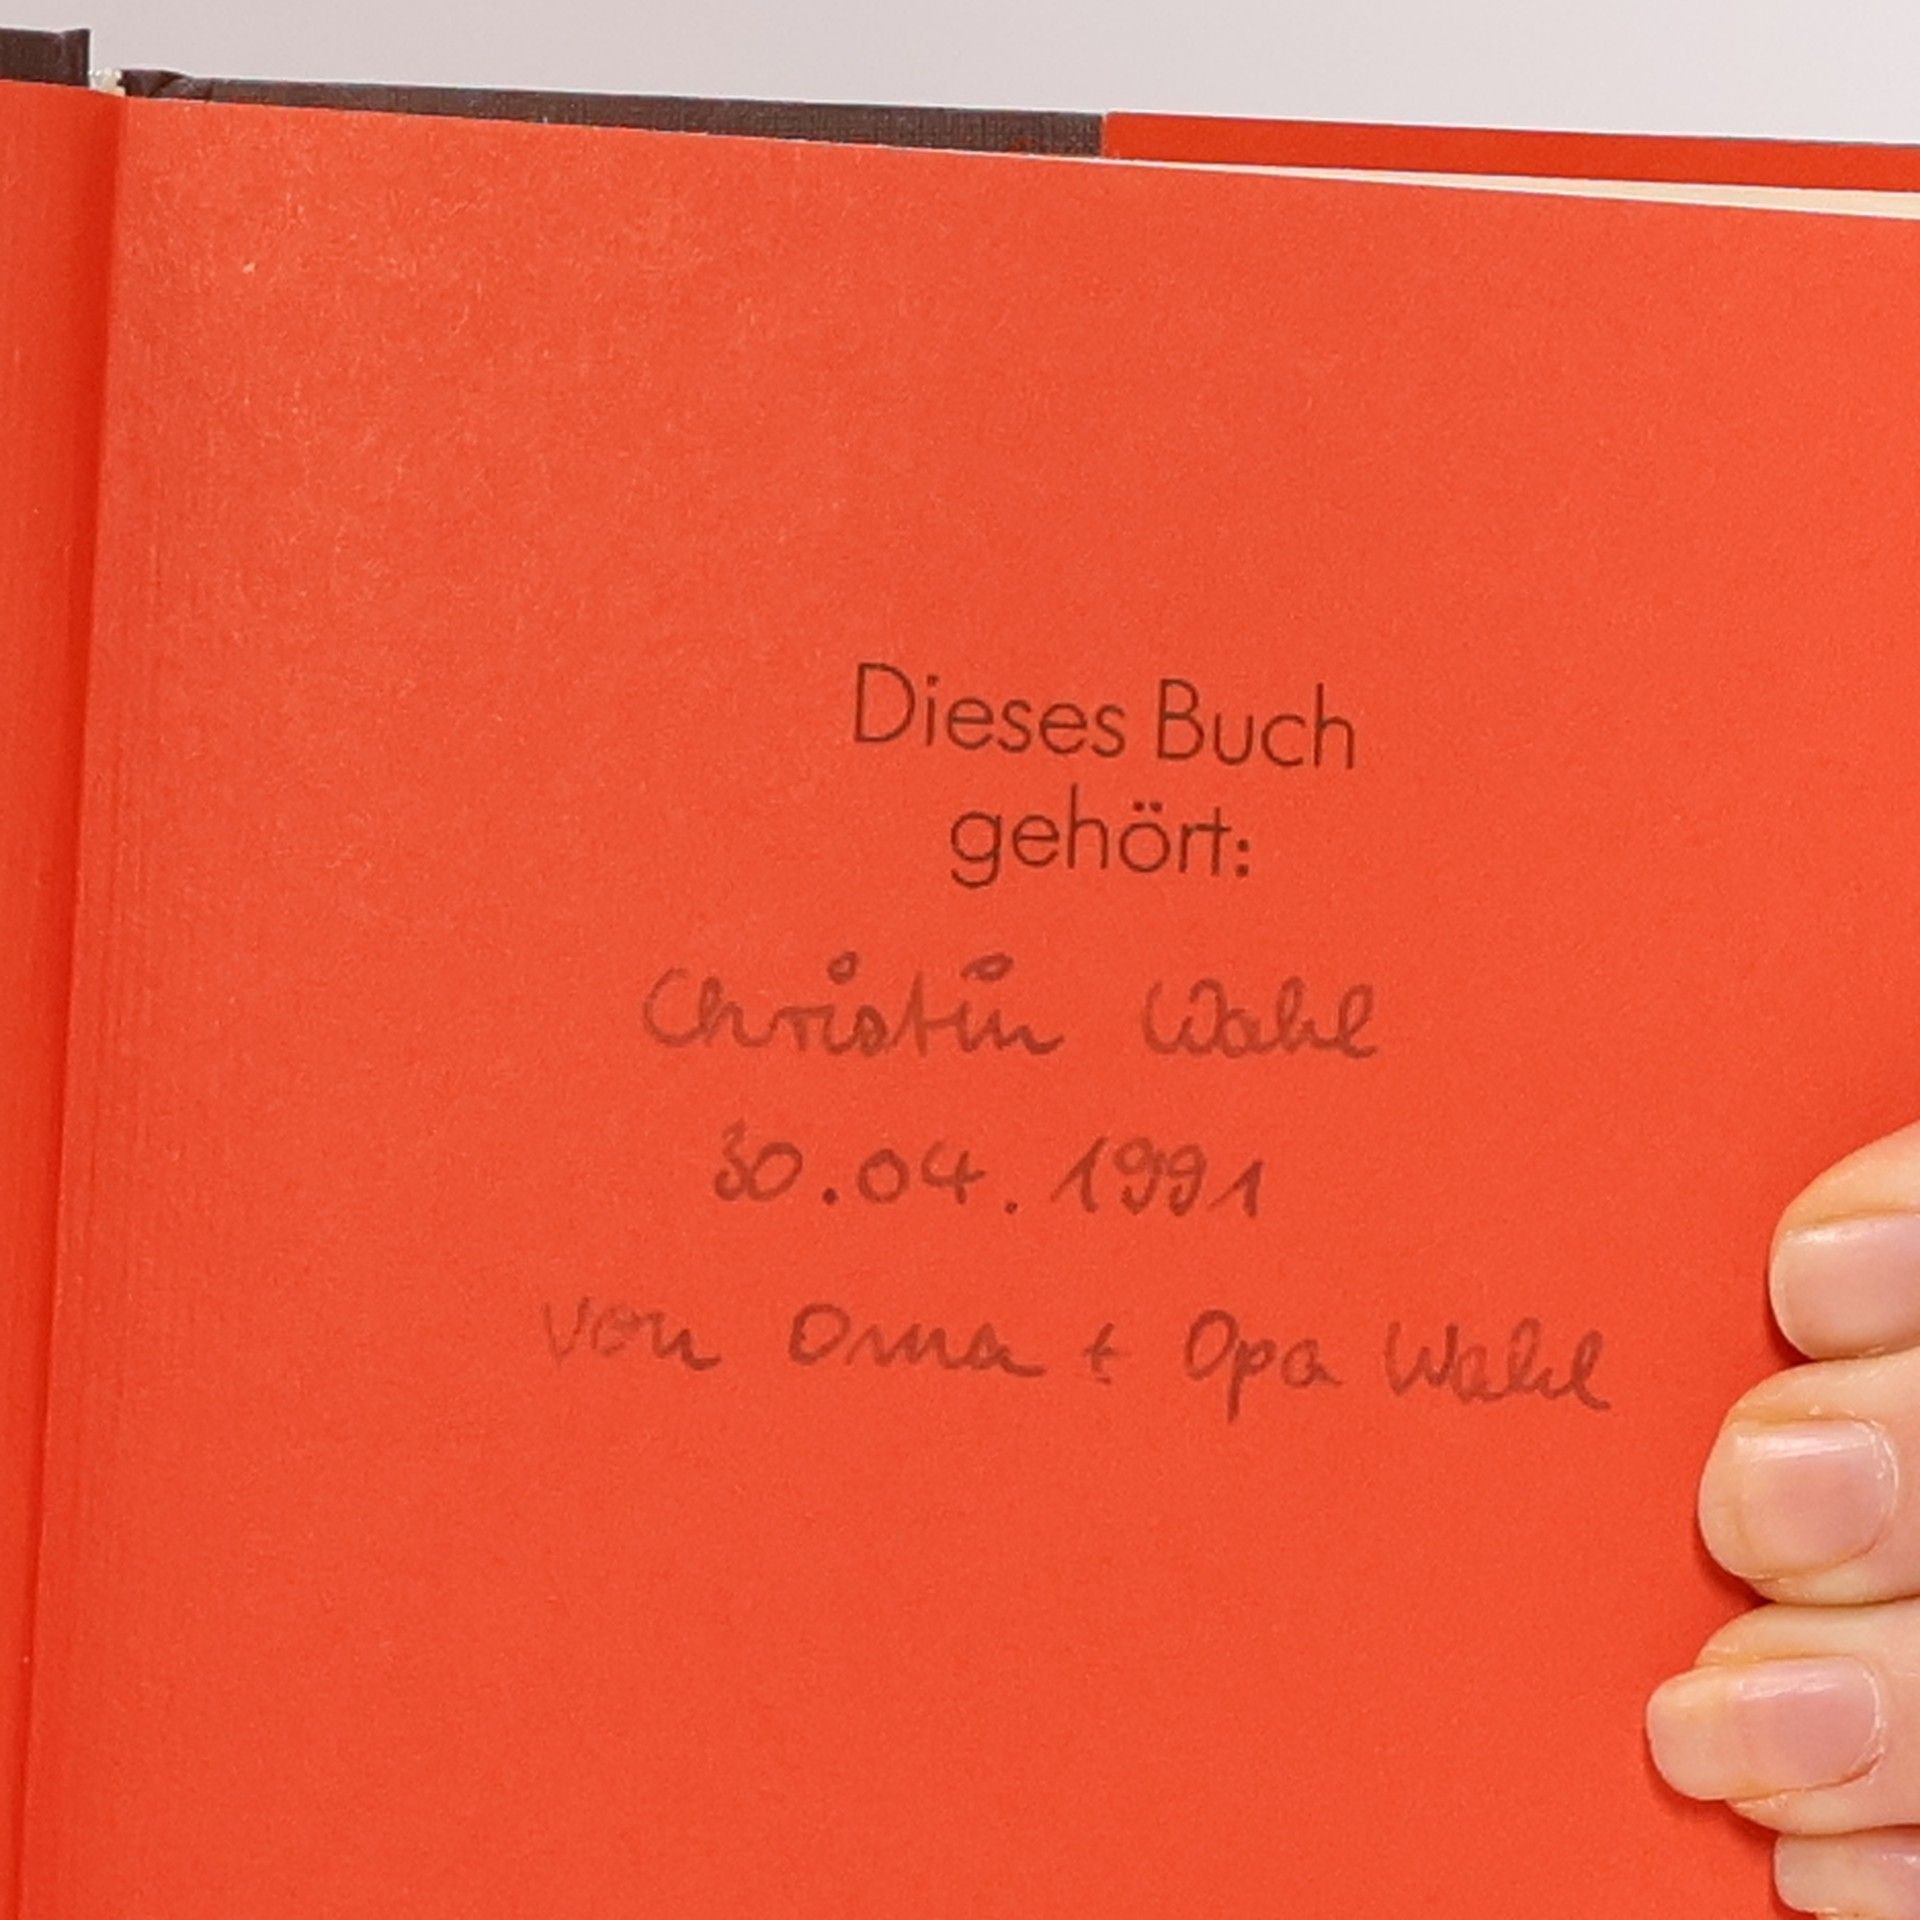 Dieses Buch
gehört:
Christin Wahl
30.04.1991
von Oma + Opa Wahl